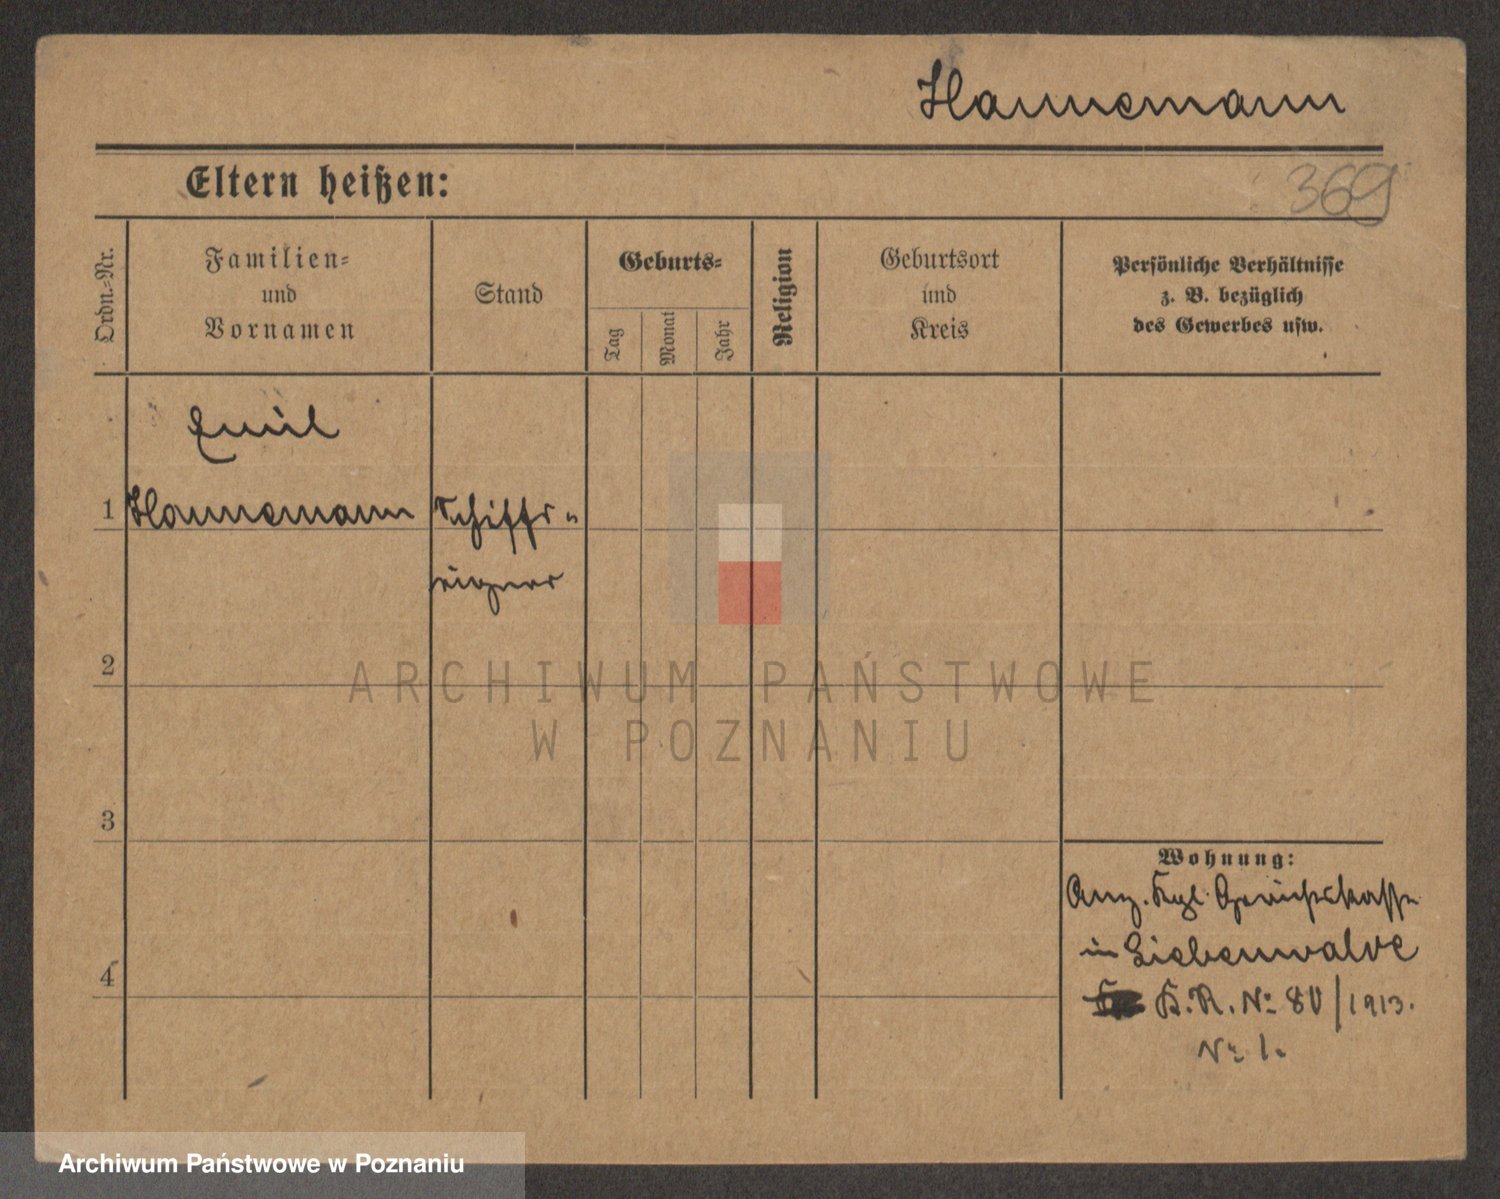 Hannemann
Eltern heißen:
369
Ordn.=Nr.
Familien=
und
Vornamen
Stand
Geburts=
Tag
Monat
Jahr
Religion
Geburtsort
und
Kreis
Persönliche Verhältnisse
z. B. bezüglich
des Gewerbes usw.
Emil
1 Hannemann Schiffs-
eigner
2
3
4
Wohnung:
Anz. Kgl. Gerichtskasse
in Liebenwalde
K.R. No. 80/1913.
No. 1.
ARCHIWUM PAŃSTWOWE
W POZNANIU
Archiwum Państwowe w Poznaniu